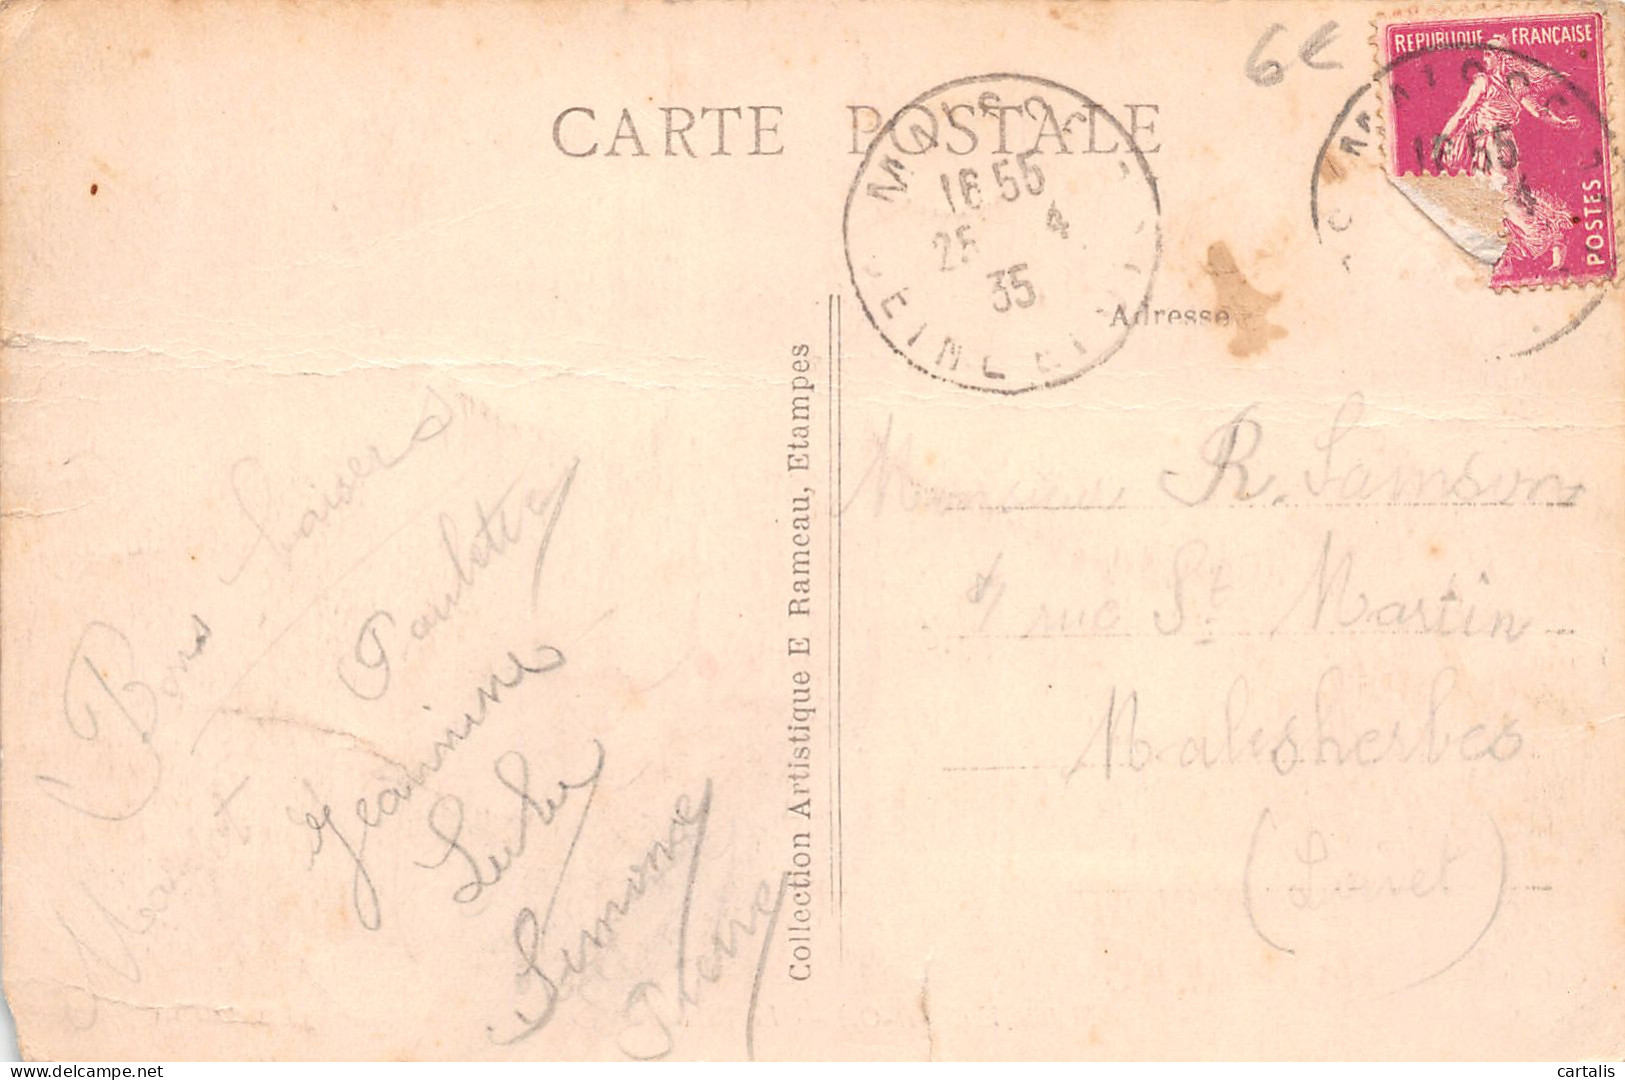 6€
REPUBLIQUE FRANÇAISE
POSTES
CARTE POSTALE
MAISSE
16 55
25 4
35
SEINE ET
16 55
4
Adresse
Collection Artistique E Rameau, Etampes
Bons baisers
Paulette
Jeannine
Simone
Pierre
Monsieur R. Samson
rue St Martin
Malesherbes
(Loiret)
delcampe.net
cartalis